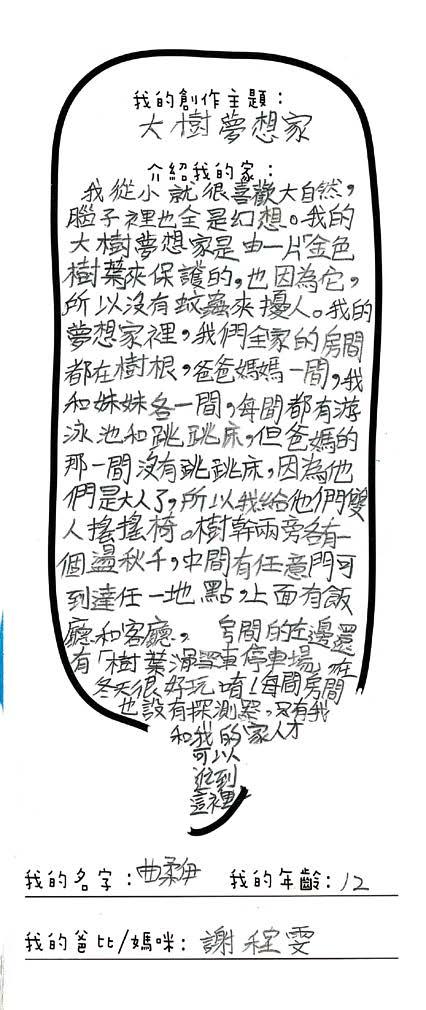 我的創作主題：
大樹夢想家
介紹我的家：
我從小就很喜歡大自然，
腦子裡也全是幻想。我的
大樹夢想家是由一片「金色
樹葉來保護的，也因為它，
所以沒有蚊蟲來擾人。我的
夢想家裡，我們全家的房間
都在樹根，爸爸媽媽一間，我
和妹妹各一間，每間都有游
泳池和跳跳床，但爸媽的
那一間沒有跳跳床，因為他
們是大人了，所以我給他們雙
人搖搖椅。樹幹兩旁各有一
個盪秋千，中間有任意門可
到達任一地點，上面有飯
廳和客廳。 間的左邊還
有「樹葉滑雪車停車場」，在
冬天很好玩唷！每間房間
也設有探測器，只有我
和我的家人才
可以
進到
這裡
我的名字：曲柔伊 我的年齡：12
我的爸比/媽咪：謝 雯